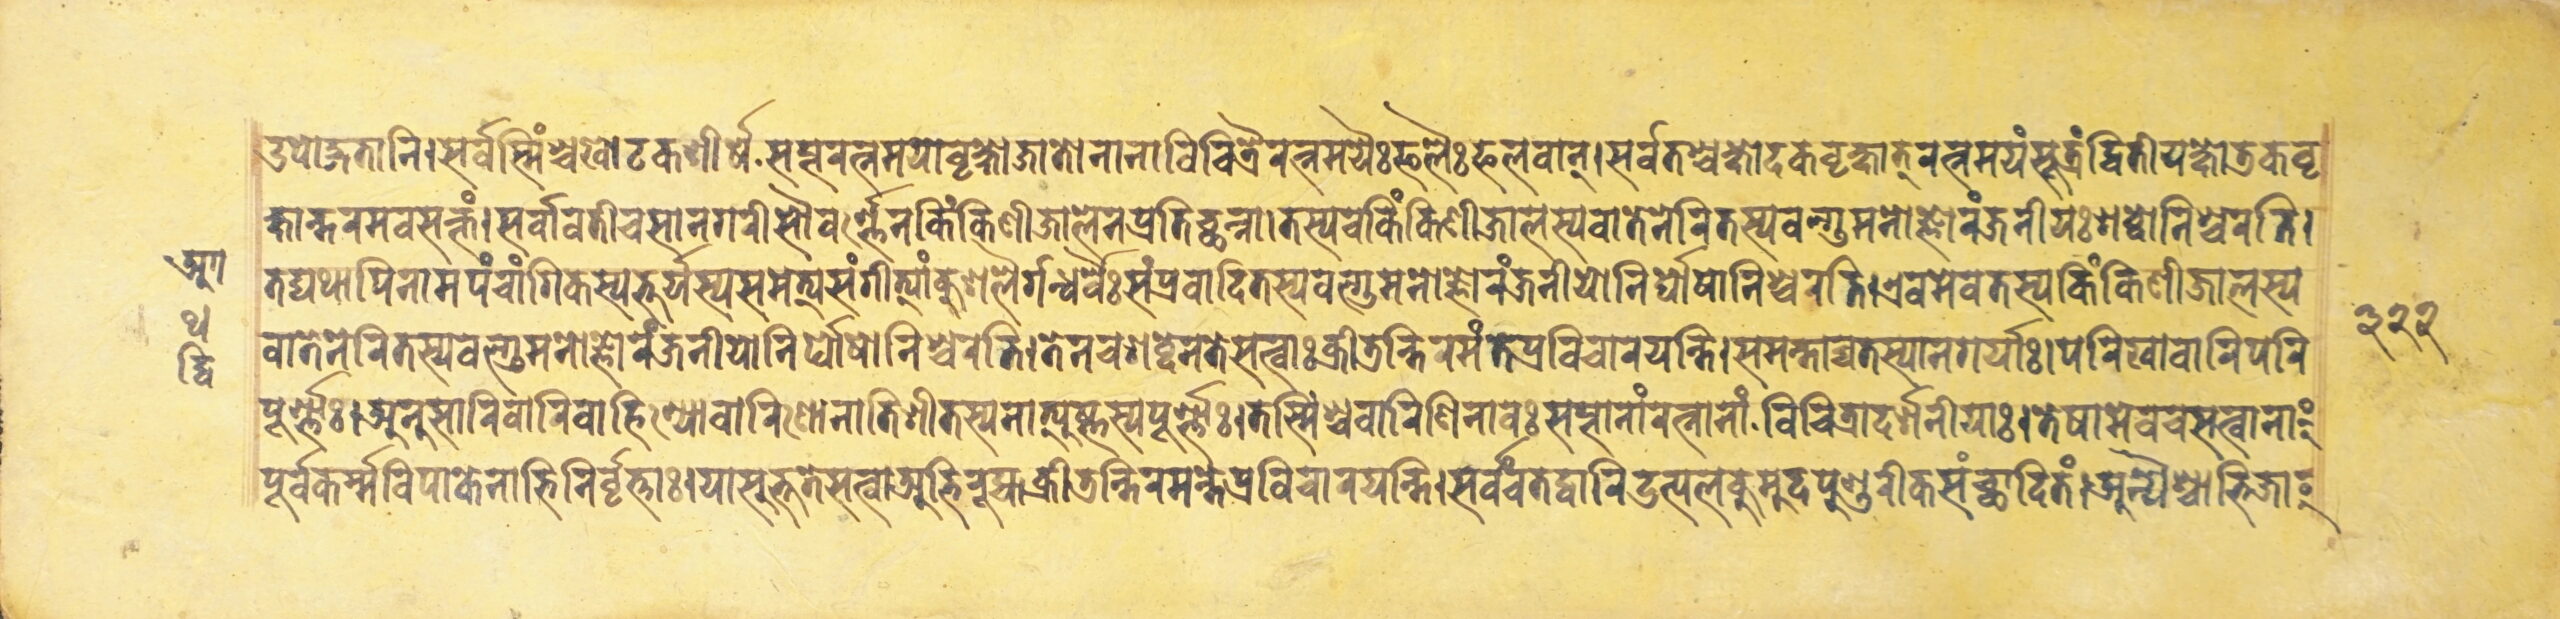 उपोद्गतानि।सर्वस्मिंश्चखोटकशीर्षे.सप्तरत्नमयोवृक्षोजातोनानाविचित्रैरत्नमयैःफलैःफलवान्।सर्वतश्चखोटकवृक्षात्रत्नमयंसूत्रंद्वितीयखोडकवृ
क्षान्तरमवसक्तं।सर्वावतीचसानगरीसौवर्ण्णेनकिंकिणीजालेनप्रतिच्छन्ना।तस्यचकिंकिणीजालस्यवातेनेरितस्यवल्गुमनोज्ञोरंजनीयःशब्दोनिश्चरति।
तद्यथापिनामपंचांगिकस्यतूर्यस्यसमेत्यसंगीत्यांकुशलैर्गन्धर्वैःसंप्रवादितस्यवल्गुमनोज्ञोरंजनीयोनिर्घोषोनिश्चरति।एवमेवतस्यकिंकिणीजालस्य
वातेनेरितस्यवल्गुमनोज्ञोरंजनीयोनिर्घोषोनिश्चरति।तेनचशब्देनतेसत्त्वाःक्रीडन्तिरमंतेप्रविचारयन्ति।समन्ताच्चतस्यानगर्याः।परिखावारिपरि
पूर्ण्णाः।अनुसारिवारिवाहिण्योवारिणोनातिशीतस्यनात्युष्णस्यपूर्ण्णाः।तस्मिंश्चवारिणिनावःसप्तानांरत्नानां.विचित्रादर्शनीयाः।तेषामेवचसत्त्वानां
पूर्वकर्म्मविपाकेनाभिनिर्वृत्ताः।यासुतेसत्त्वाअभिरुह्यक्रीडन्तिरमन्तेप्रविचारयन्ति।सर्वंचतद्वारिउत्पलकुमुदपुण्डरीकसंच्छादितं।अन्यैश्चाभिजा
आ
थ
द्वि
३२२